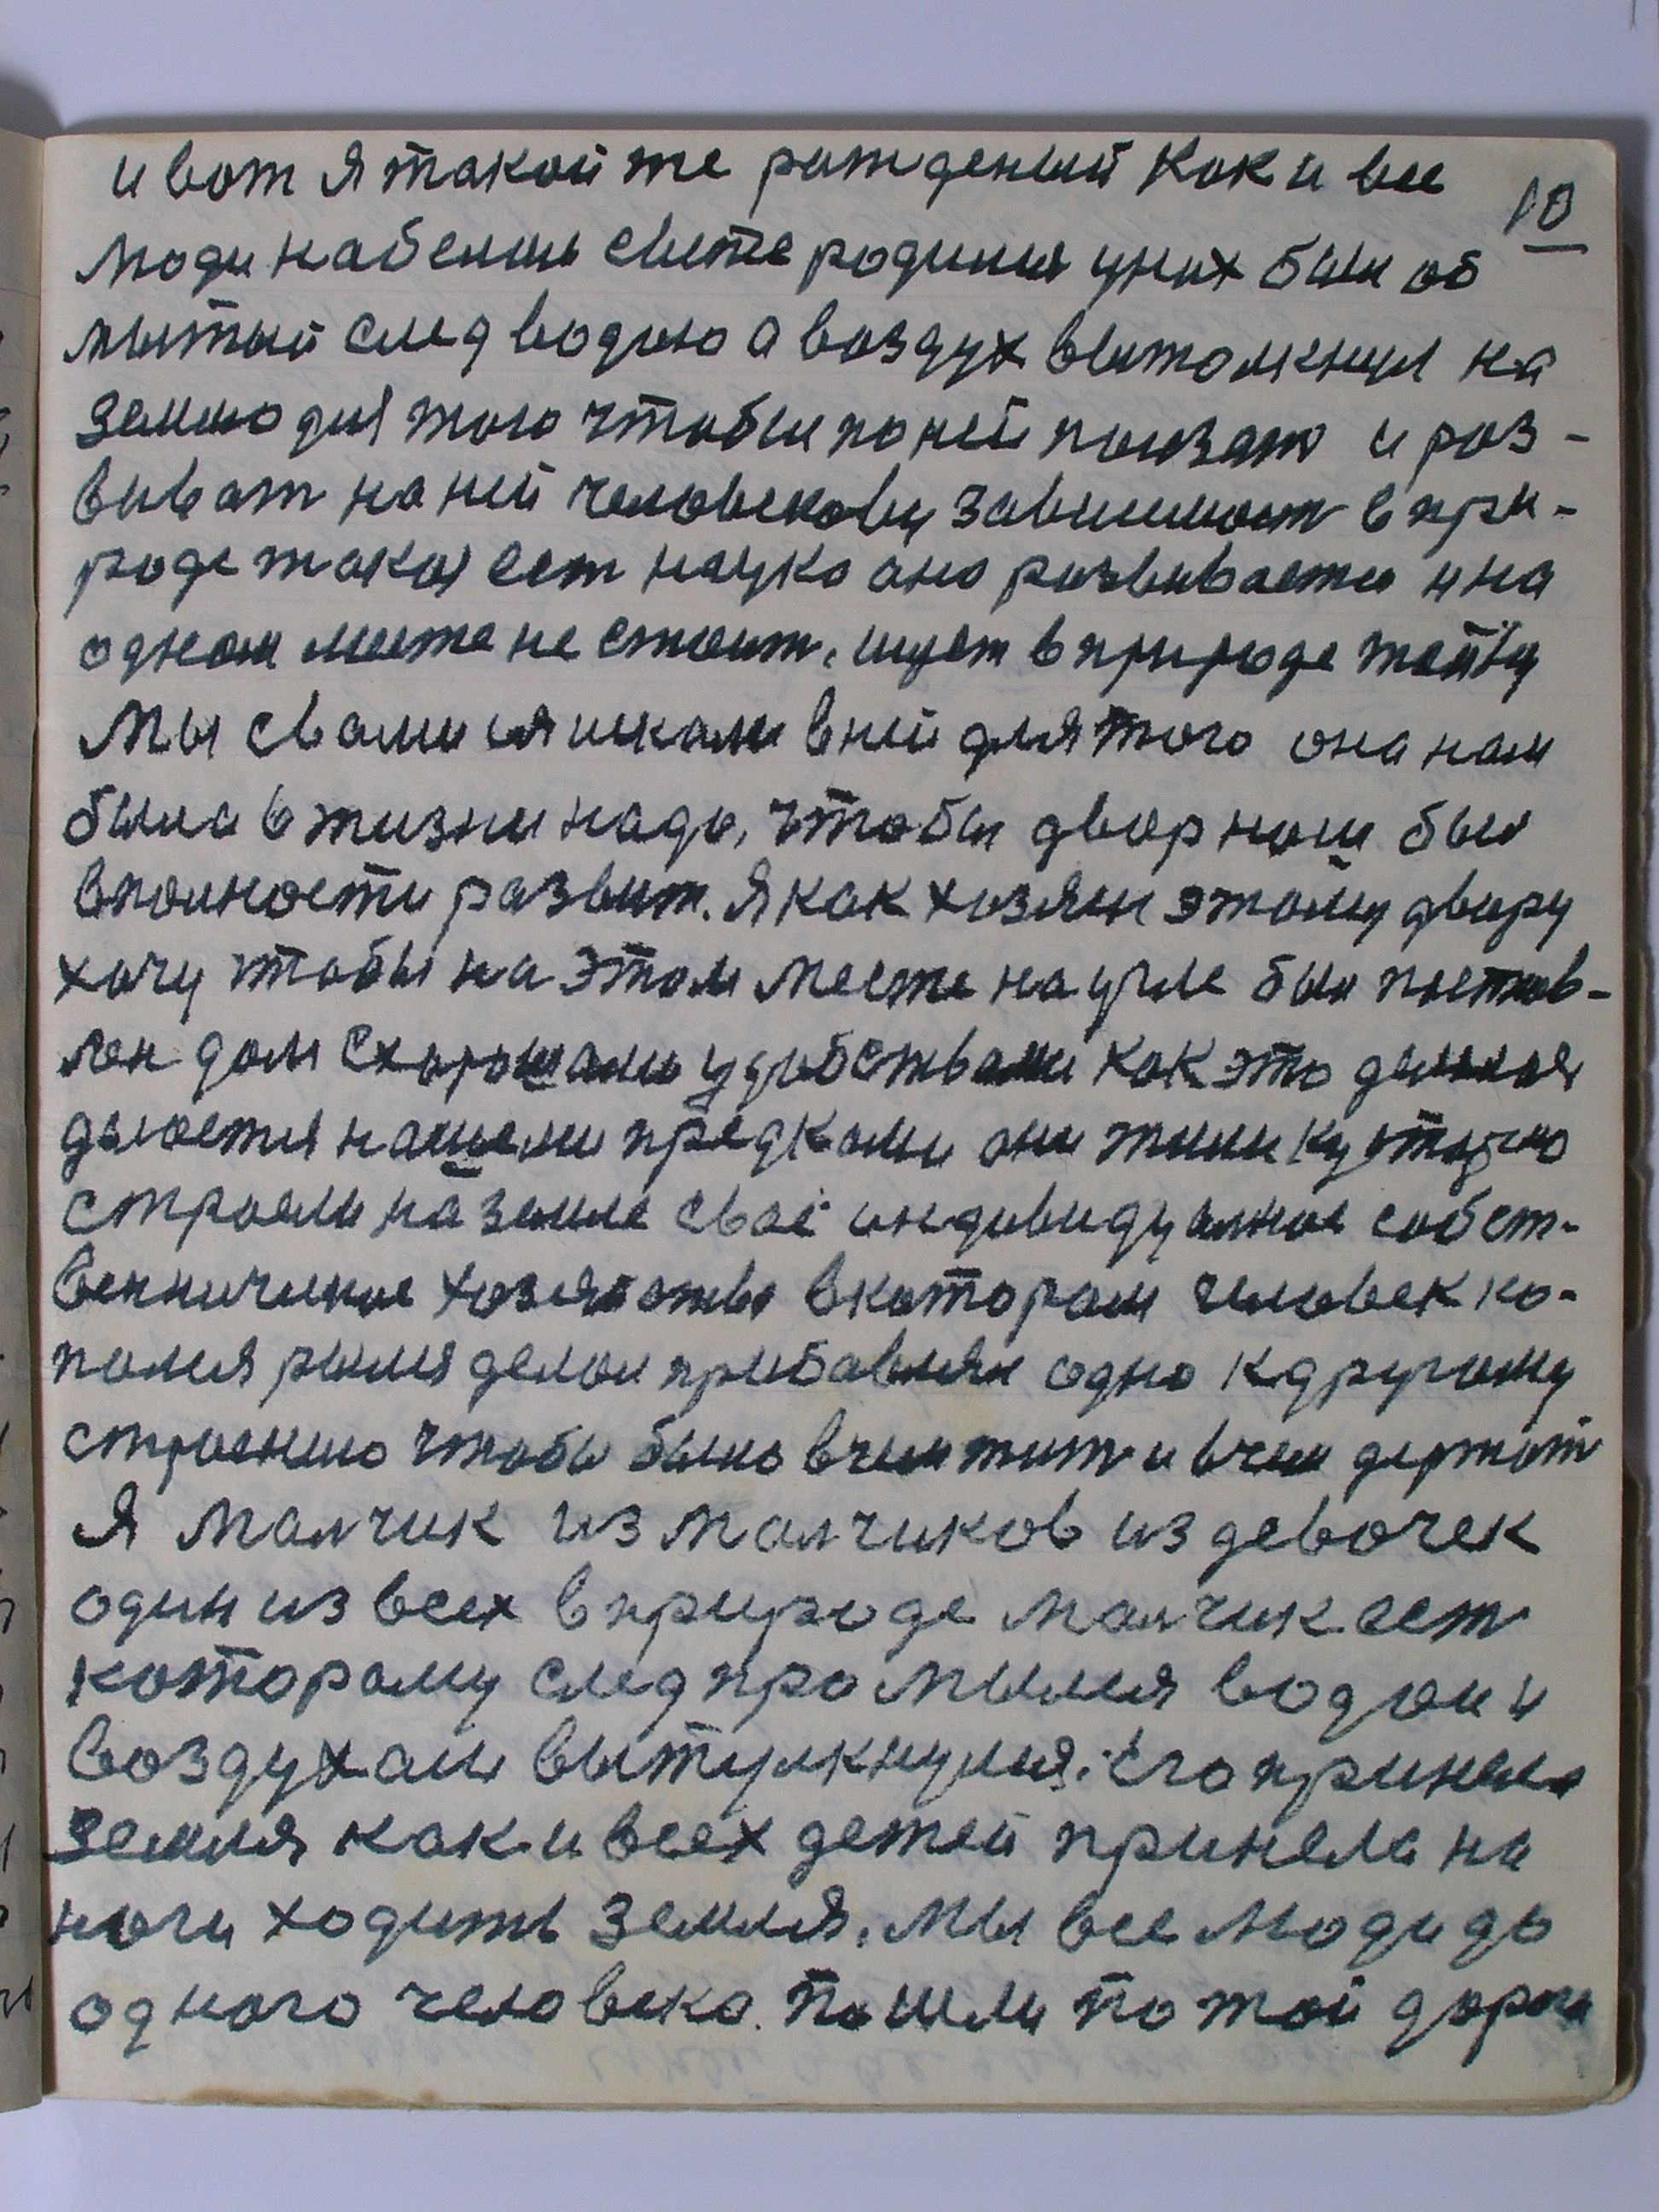 и вот я такой же рожденый как и все
10
люди на белом свете родился у них был об
мытый след водою а воздух вытолкнул на
землю для того чтобы по ней ползат и роз-
виват на ней человекову зависимост в при-
роде такая ест наука ано розвивается и на
одном месте не стоит, ищет в природе тайну
Мы с вами ея искали в ней для того она нам
была в жизни надо, чтобы двор наш был
вполности развит. Я как хозяин этому двору
хочу чтобы на этом месте на угле был постав-
лен дом с хорошами удобствами как это делалося
делается нашеми предками они жили кутором
строели на земле своё индивидуалное собст-
венничиское хозяйство в котором человек ко-
пался рылся делал прибавлял одно к другому
строению чтобы было в чем жит и в чем держат
Я малчик из малчиков из девочек
один из всех в природе малчик ест
которому след про мылся водой и
воздухам вытулкнулся. Его принела
земля как и всех детей принела на
ноги ходить земля. Мы все люди до
одного человека. пошли по той дороги